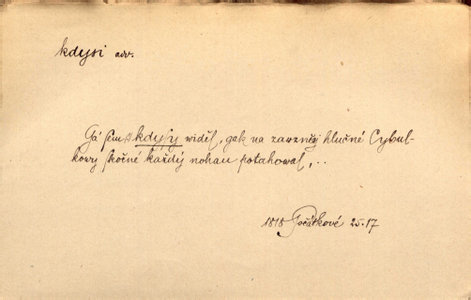 kdysi adv.
Gá sem kdysy widěl, gak na zawznělý hlučné Cybul-
kowy skočné každý nohau potahowal, ..
1818 Počátkové 25-17